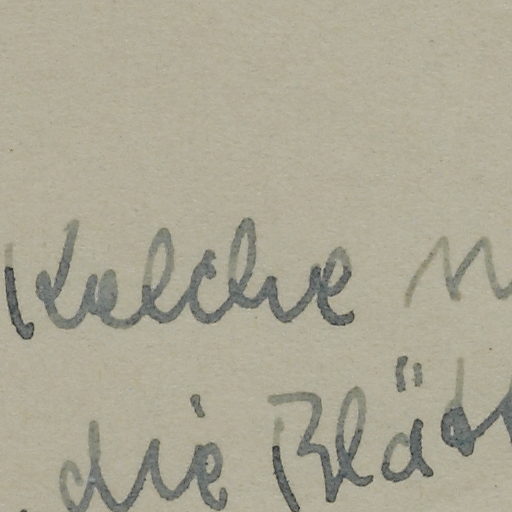 Kelche
die Blät